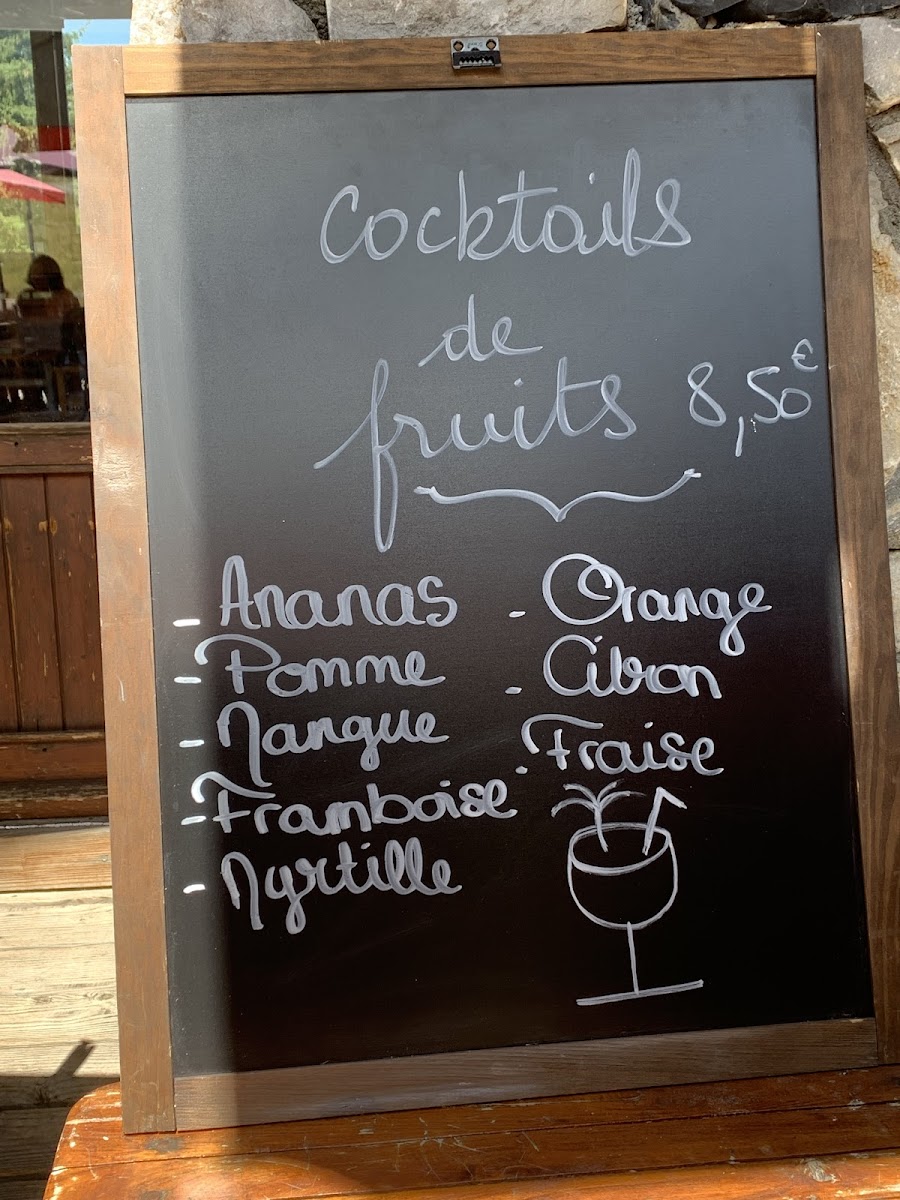 Cocktails
de
fruits 8,50€
- Ananas
- Pomme
- Mangue
- Framboise
- Myrtille
- Orange
- Citron
- Fraise